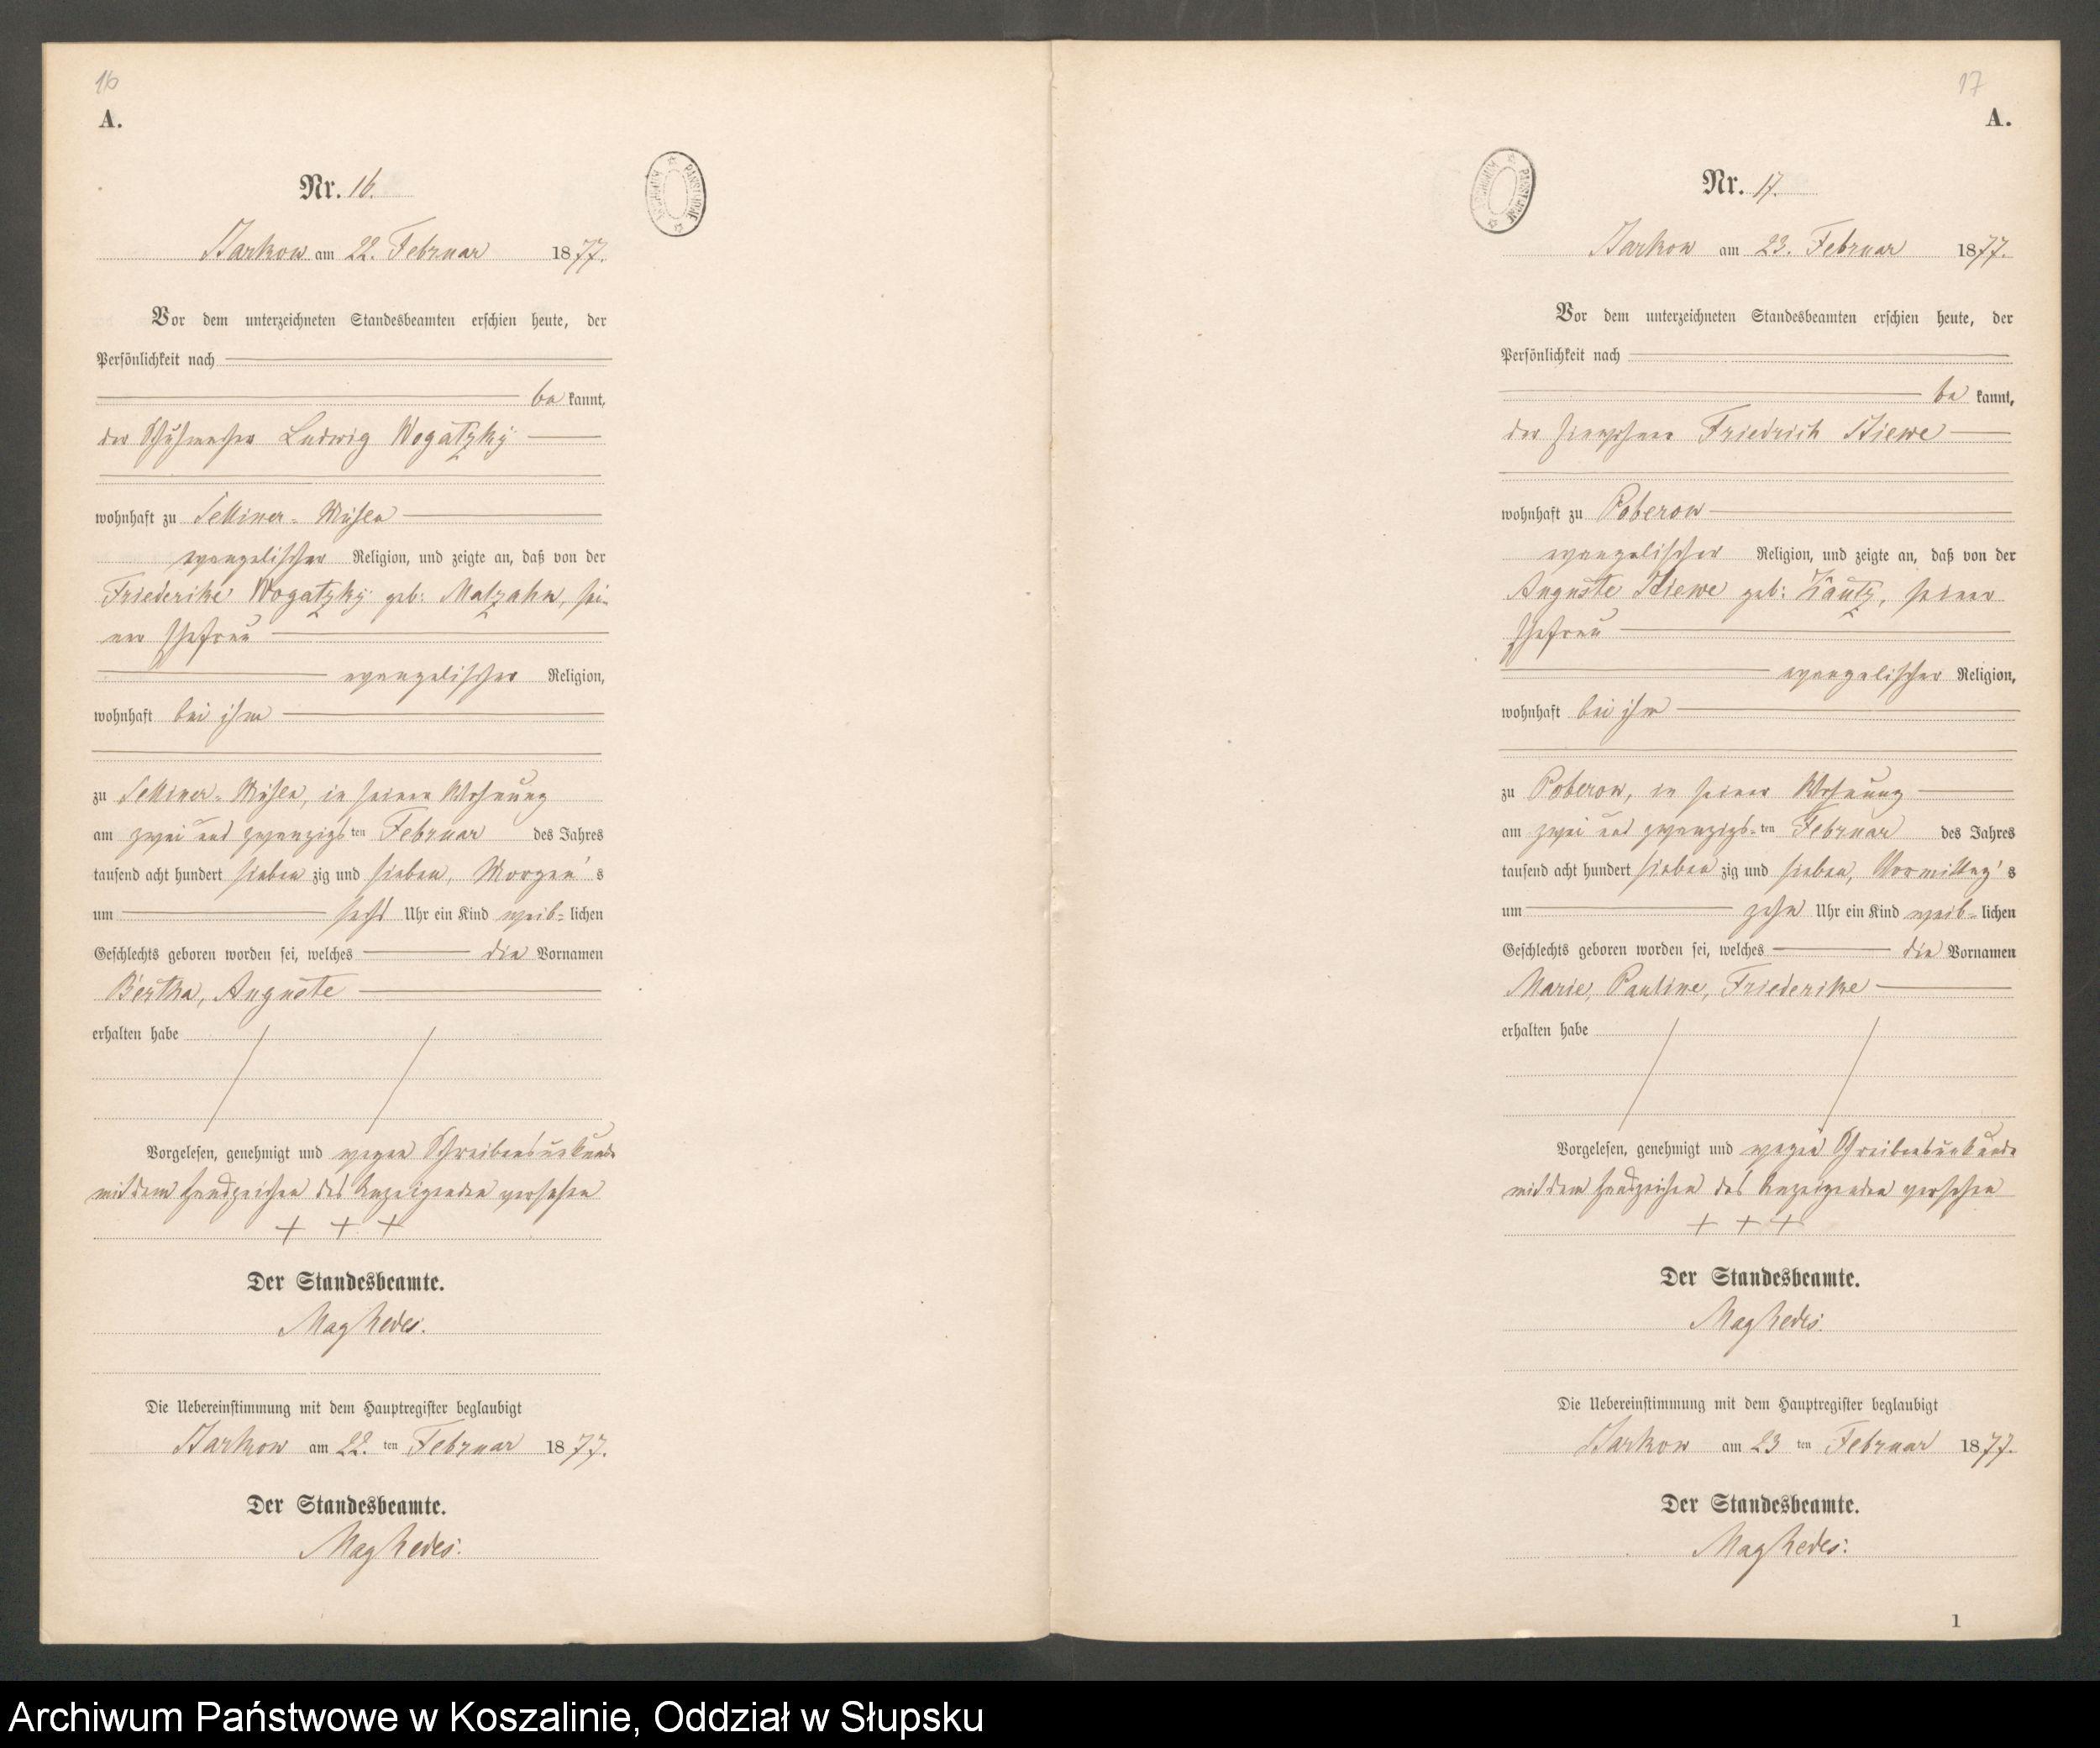 16
A.
Nr. 16.
Starkow am 22. Februar 1877.
Vor dem unterzeichneten Standesbeamten erschien heute, der
Persönlichkeit nach
be kannt,
der Schuhmacher Ludwig Wogatzky
wohnhaft zu Selliner-Mühle
evangelischer Religion, und zeigte an, daß von der
Friederike Wogatzky geb: Matzahn, sei-
ner Ehefrau
evangelischer Religion,
wohnhaft bei ihm
zu Selliner-Mühle, in seiner Wohnung
am zwei und zwanzigsten Februar des Jahres
tausend acht hundert sieben zig und sieben, Morgen's
um sechs Uhr ein Kind weib-lichen
Geschlechts geboren worden sei, welches die Vornamen
Bertha, Auguste
erhalten habe
Vorgelesen, genehmigt und wegen Schreibensunkunde
mit dem Handzeichen des Anzeigenden versehen
+ + +
Der Standesbeamte.
Die Uebereinstimmung mit dem Hauptregister beglaubigt
Starkow am 22. ten Februar 1877.
Der Standesbeamte.
17
A.
ARCHIWUM PAŃSTWOWE
Nr. 17.
Starkow am 23. Februar 1877.
Vor dem unterzeichneten Standesbeamten erschien heute, der
Persönlichkeit nach
be kannt,
der Einwohner Friedrich Stiewe
wohnhaft zu Poberow
evangelischer Religion, und zeigte an, daß von der
Auguste Stiewe geb: seiner
Ehefrau
evangelischer Religion,
wohnhaft bei ihm
zu Poberow, in seiner Wohnung
am zwei und zwanzigs-ten Februar des Jahres
tausend acht hundert sieben zig und sieben, Vormittag's
um zehn Uhr ein Kind weib-lichen
Geschlechts geboren worden sei, welches die Vornamen
Marie, Pauline, Friederike
erhalten habe
Vorgelesen, genehmigt und wegen Schreibensunkunde
mit dem Handzeichen des Anzeigenden versehen
+ + +
Der Standesbeamte.
Die Uebereinstimmung mit dem Hauptregister beglaubigt
Starkow am 23 ten Februar 1877.
Der Standesbeamte.
1
Archiwum Państwowe w Koszalinie, Oddział w Słupsku